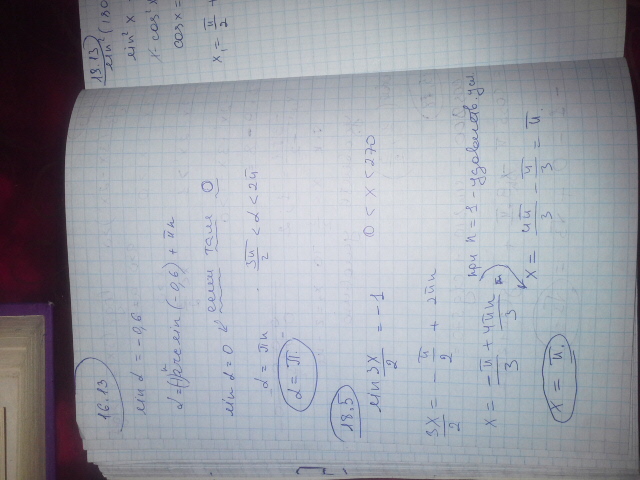 16.13
sin α = -0,6
α = (-1)ⁿ arcsin(-0,6) + πn
sin α = 0 ← если там 0
α = πn    3π/2 < α < 2π
α = π.
18.5
sin 3x/2 = -1    0 < x < 270
3x/2 = -π/2 + 2πn
x = -π/3 + 4πn/3    при n = 1 - удовлетв. усл
x = 4π/3 - π/3 = π.
x = π.
18.13)
sin²
sin² x
1 - cos² x
cos x =
x₁ = π/2 +